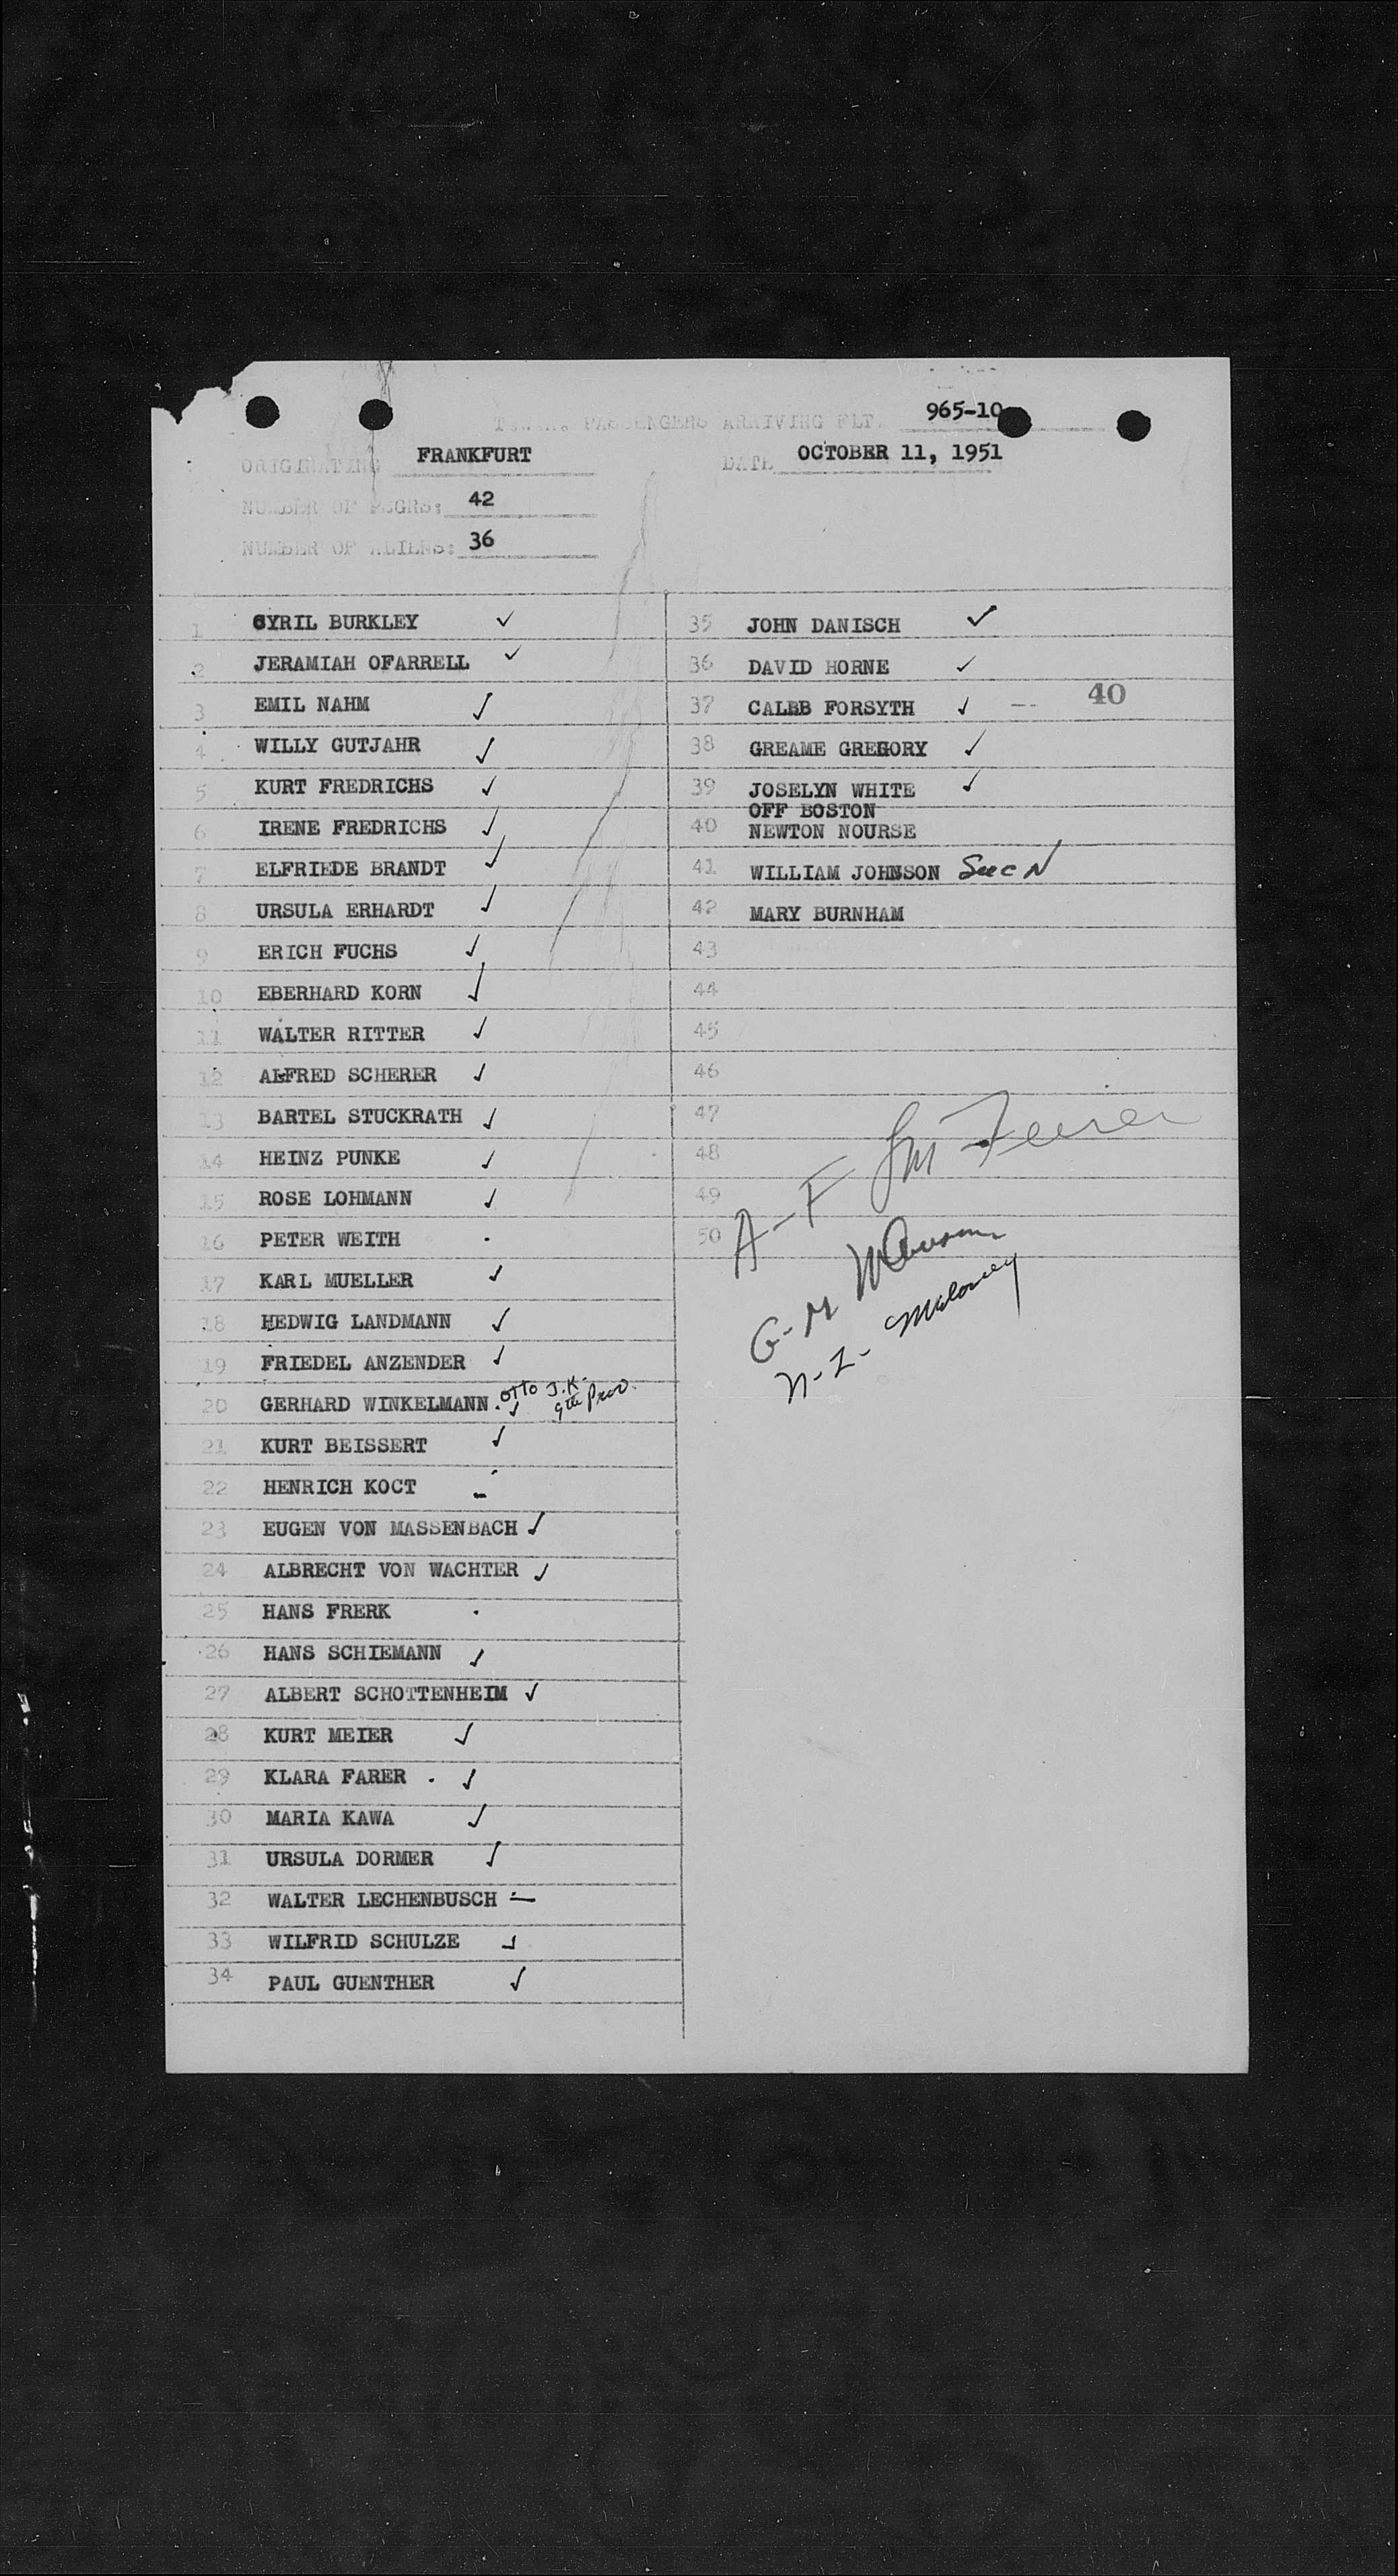 PASSENGERS ARRIVING FLT. 965-10
ORIGINATING FRANKFURT DATE OCTOBER 11, 1951
NUMBER OF PSGRS: 42
NUMBER OF ALIENS: 36
1 CYRIL BURKLEY ✓
2 JERAMIAH OFARRELL ✓
3 EMIL NAHM ✓
4 WILLY GUTJAHR ✓
5 KURT FREDRICHS ✓
6 IRENE FREDRICHS ✓
7 ELFRIEDE BRANDT ✓
8 URSULA ERHARDT ✓
9 ERICH FUCHS ✓
10 EBERHARD KORN ✓
11 WALTER RITTER ✓
12 ALFRED SCHERER ✓
13 BARTEL STUCKRATH ✓
14 HEINZ PUNKE ✓
15 ROSE LOHMANN ✓
16 PETER WEITH
17 KARL MUELLER ✓
18 HEDWIG LANDMANN ✓
19 FRIEDEL ANZENDER ✓
20 GERHARD WINKELMANN ✓ OTTO J.K. 9th Prov.
21 KURT BEISSERT ✓
22 HENRICH KOCT
23 EUGEN VON MASSENBACH ✓
24 ALBRECHT VON WACHTER ✓
25 HANS FRERK
26 HANS SCHIEMANN ✓
27 ALBERT SCHOTTENHEIM ✓
28 KURT MEIER ✓
29 KLARA FARER . ✓
30 MARIA KAWA ✓
31 URSULA DORMER ✓
32 WALTER LECHENBUSCH
33 WILFRID SCHULZE ✓
34 PAUL GUENTHER ✓
35 JOHN DANISCH ✓
36 DAVID HORNE ✓
37 CALEB FORSYTH ✓ -- 40
38 GREAME GREGORY ✓
39 JOSELYN WHITE ✓
OFF BOSTON
40 NEWTON NOURSE
41 WILLIAM JOHNSON
42 MARY BURNHAM
43
44
45
46
47
48
49
50
A-F
G-M
N-Z- Maloney